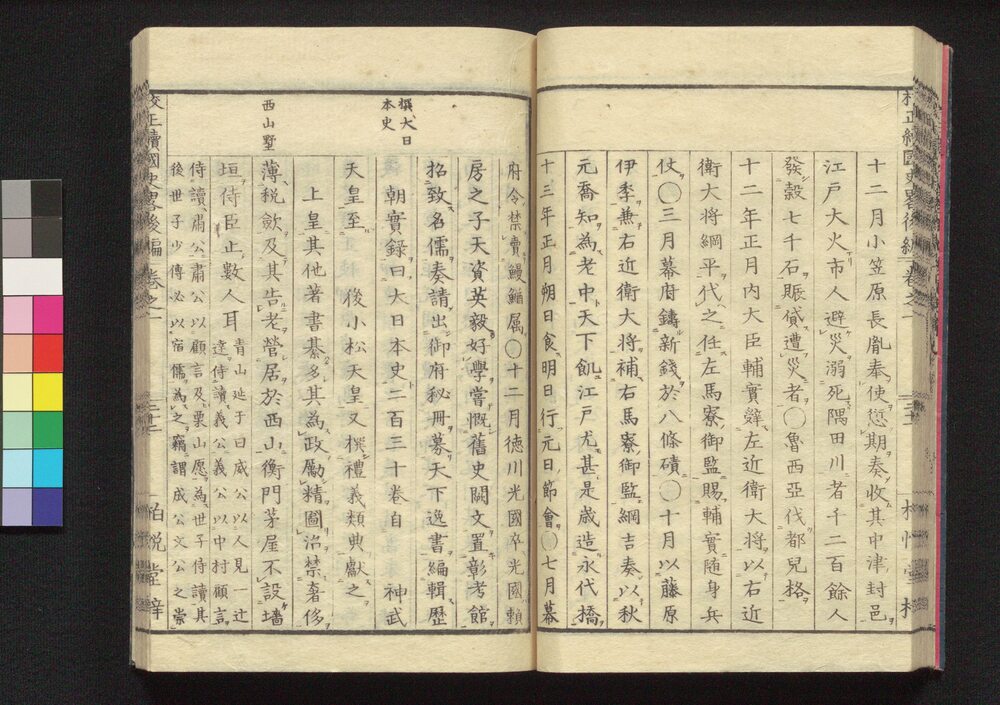 十二月小笠原長胤奉使愆期奏收其中津封邑
江戸大火市人避災溺死隅田川者千二百餘人
發穀七千石賑貸遭災者〇魯西亞伐都兒格
十二年正月内大臣輔實辭左近衛大将以右近
衛大将綱平代之任左馬寮御監賜輔實随身兵
仗〇三月幕府鑄新錢於八條磧〇十月以藤原
伊季兼右近衛大将補右馬寮御監綱吉奏以秋
元喬知為老中天下飢江戸尤甚是歳造永代橋
十三年正月朔日食明日行元日節會〇七月幕
府令禁賣鰻鰌属〇十二月徳川光國卒光國頼
房之子天資英毅好學嘗慨舊史闕文置彰考館
招致名儒奏請出御府秘冊募天下逸書編輯歴
撰大日
本史
朝實録曰大日本史二百三十卷自　神武
天皇至　後小松天皇又撰禮義類典獻之
上皇其他著書綦多其為政勵精圖治禁奢侈
西山墅
薄税斂及其告老營居於西山衡門茅屋不設墻
垣侍臣止數人耳
青山延于曰威公以人見一辻
逹侍讀義公義公以中村顧言
侍讀肅公肅公以顧言及栗山愿為世子侍讀其
後世子少傅必以宿儒為之竊謂成公文公之崇
校正續國史畧後編　卷之一　三十三　柏悦堂梓